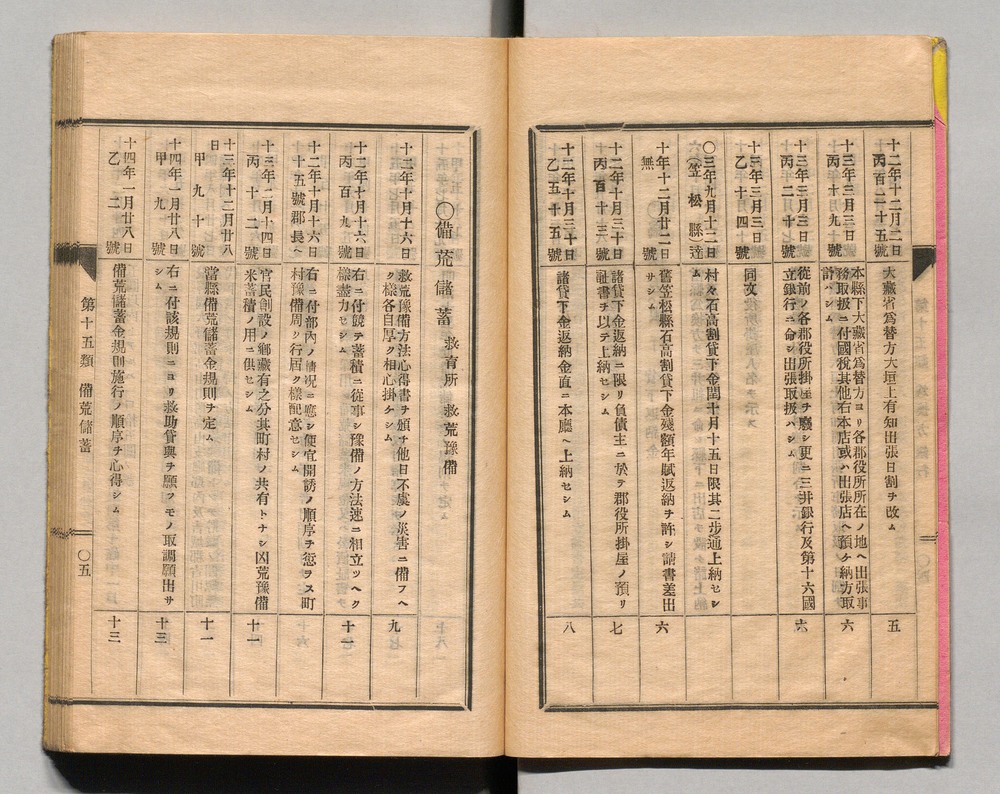 十二年十二月二日
丙百二十五號
大藏省爲替方大垣上有知出張日割ヲ改ム
五
十三年三月三日
丙二十九號
本縣下大藏省爲替方ヨリ各郡役所所在ノ地ヘ出張事
務取扱ニ付國稅其他右本店或ハ出張店ヘ預ケ納方取
計ハシム
六
十三年三月三日
丙二十號
從前ノ各郡役所掛屋ヲ廢シ更ニ三井銀行及第十六國
立銀行ニ命シ出張取扱ハシム
六
十三年三月三日
乙十四號
同文
〇三年九月十二日
(笠松縣達
村々石高割貸下金閏十月十五日限其二步通上納セシ
ム
十年十二月廿二日
無號
舊笠松縣石高割貸下金殘額年賦返納ヲ許シ請書差出
サシム
六
十二年十月三十日
丙百十三號
諸貸下金返納ニ限リ負債主ニ於テ郡役所掛屋ノ預リ
証書ヲ以テ上納セシム
七
十二年十月三十日
乙五十五號
諸貸下金返納金直ニ本廳ヘ上納セシム
八
〇備荒儲蓄 救育所 救荒豫備
十二年十月十六日
救荒豫備方法心得書ヲ頒チ他日不虞ノ災害ニ備フヘ
ク樣各自厚ク相心掛ケシム
九
十二年十月十六日
丙百九號
右ニ付競テ蓄積ニ從事シ豫備ノ方法速ニ相立ツヘク
樣盡力セシム
十一
十二年十月十六日
十五號郡長ヘ
右ニ付部內ノ情況ニ應シ便宜開誘ノ順序ヲ愆ラス町
村豫備周ク行屆ク樣配意セシム
十三年二月十四日
丙十二號
官民創設ノ鄕藏有之分其町村ノ共有トナシ凶荒豫備
米蓄積ノ用ニ供セシム
十一
十三年十二月廿八
日
甲九十號
當縣備荒儲蓄金規則ヲ定ム
十一
十四年一月廿八日
甲九號
右ニ付該規則ニヨリ救助貸與ヲ願フモノ取調願出サ
シム
十三
十四年一月廿八日
乙二號
備荒儲蓄金規則施行ノ順序ヲ心得シム
十三
第十五類 備荒儲蓄
〇五